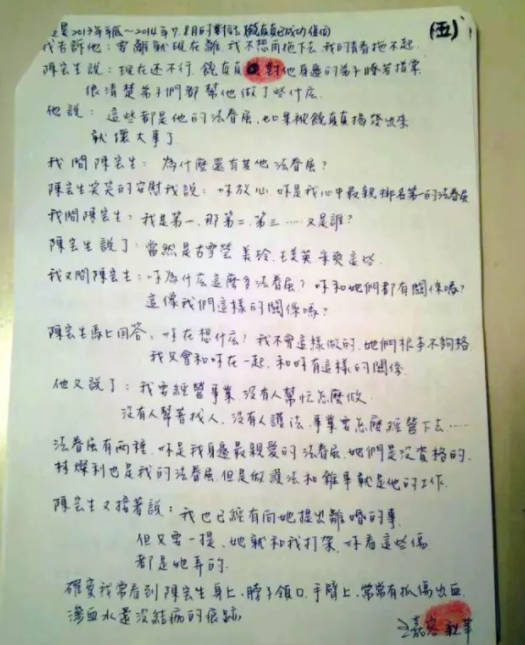 (五)
是2013年年底~2014年7.8月的對話
我告訴他：要離就現在離 我不想再拖下去 我的青春拖不起.
陳宏生說：現在还不行. 饒真真 對他身邊的弟子瞭若指掌.
很清楚弟子們都幫他做了些什広.
他說：這些都是他的法眷屬,如果被饒真真揭發出來
就壞大事了
我問陳宏生：為什麼還有其他法眷屬?
陳宏生笑笑的安慰我說：妳放心 妳是我心中最親排名第一的法眷屬
我問陳宏生：我是第一.那第二.第三.....又是誰?
陳宏生說了：當然是 美玲. 這些.
我又問陳宏生：妳為什広這麼多法眷屬? 妳和她們都有關係嗎?
這像我們這樣的關係嗎?
陳宏生馬上回答：妳在想什広? 我不會這樣做的.她們根本不夠格
我只會和妳在一起.和妳有這樣的關係
他又說了：我要經營事業.沒有人幫忙怎麼做.
沒有人幫著找人.沒有人護法.事業要怎麼經營下去.....
法眷屬有兩種.妳是我身邊最親愛的法眷屬.她們是沒資格的.
林燦利也是我的法眷屬.但是做護法和雜事就是他的工作.
陳宏生又接著說：我也已經有向她提出離婚的事.
但只要一提.她就和我打架.妳看這些傷
都是她弄的.
確實我常看到陳宏生身上.脖子領口.手臂上.常常有抓傷出血
滲血水還沒結痂的痕跡.